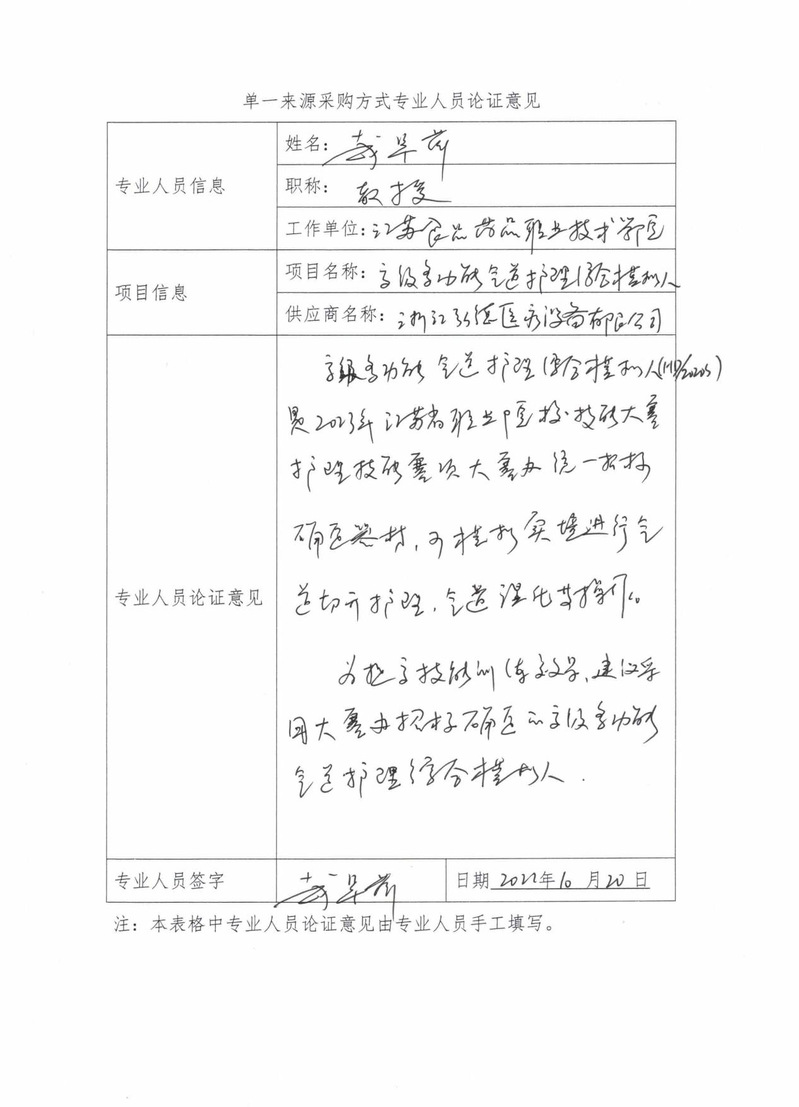 单一来源采购方式专业人员论证意见
专业人员信息
姓名：
职称：教授
工作单位：江苏食品药品职业技术学院
项目信息
项目名称：高级多功能气道护理综合模拟人
供应商名称：浙江弘德医疗设备有限公司
专业人员论证意见
高级多功能气道护理综合模拟人
是2023年江苏省职业院校技能大赛
护理技能赛项大赛办统一招标
确定器材，可模拟实境进行气
道切开护理，气道湿化等操作。
为提高技能训练效果，建议采
用大赛办招标确定的高级多功能
气道护理综合模拟人．
专业人员签字
日期 2022年10月20日
注：本表格中专业人员论证意见由专业人员手工填写。